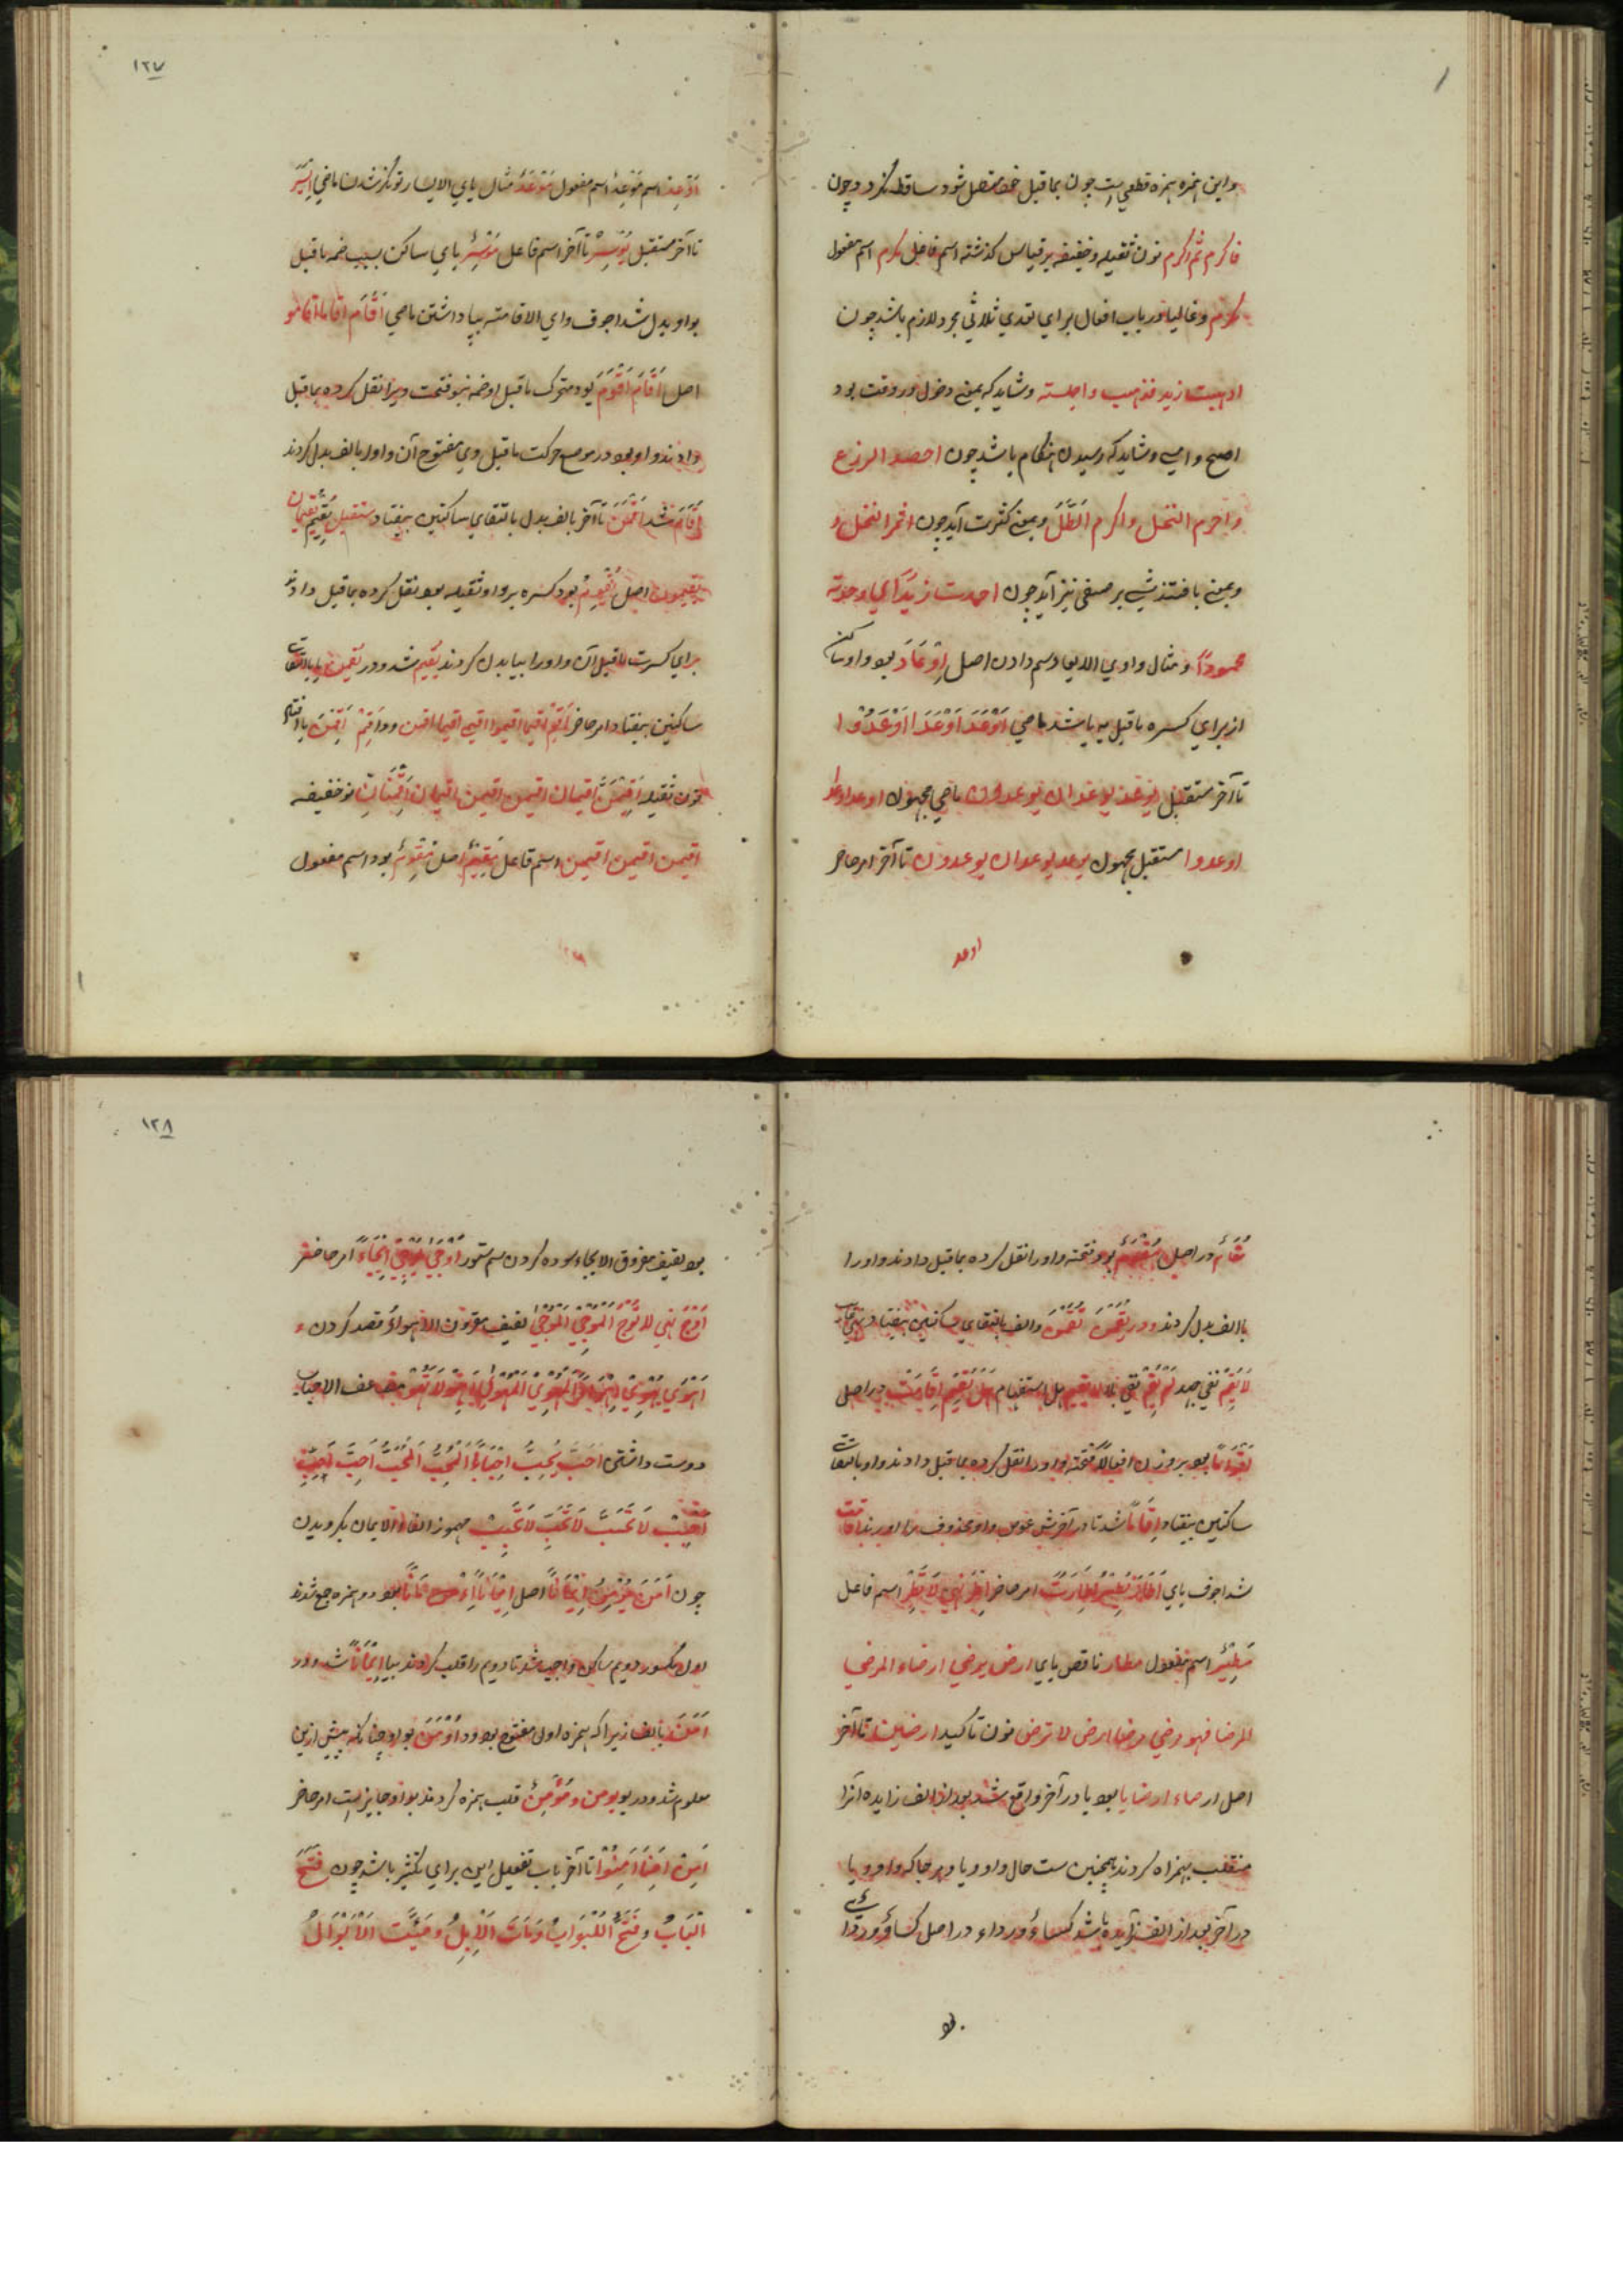 واین همزه همزه قطعی است چون بماقبل خود متصل شود ساقط نگردد چون
فاکرم ثم اکرم نون ثقیله وخفیفه بر قیاس گذشته اسم فاعل مکرم اسم مفعول
مکرم وغالبا در باب افعال برای تعدی ثلاثی مجرد لازم باشد چون
اذهبت زید فذهب واجلسته وشاید که بمعنی دخول در وقت بود
اصبح وامسی وشاید که رسیدن هنگام باشد چون احصد الزرع
واصرم النخل وبمعنی کثرت آید چون اثمر النخل
وبمعنی یافتن شی بر صفتی نیز آید چون احمدت زیدا ای وجدته
محمودا ومثال واوی الایعاد بیم دادن اصل اِوْعَاد بود واو ساکن
از برای کسره ماقبل به یا شد ماضی اَوْعَدَ اَوْعَدَا اَوْعَدُوْا
تا آخر مستقبل یوعد یوعدان یوعدون ماضی مجهول اوعد اوعدا
اوعدوا مستقبل مجهول یوعد یوعدان یوعدون تا آخر امر حاضر
اوعد
۱۲۷
اَوْعِد اسم مُوْعِدٌ اسم مفعول مُوْعَدٌ مثال یای الایسار توانگر شدن ماضی اَیْسَرَ
تا آخر مستقبل یُوْسِرُ تا آخر اسم فاعل مُوْسِرٌ یای ساکن بسبب ضمه ماقبل
بواو بدل شد اجوف واوی الاقامة بپا داشتن ماضی اَقَامَ اقاما اقاموا
اصل اَقَامَ اَقْوَمَ بود متحرک ماقبل او فتحت ویرا نقل کرده بماقبل
دادند واو بود در موضع حرکت ماقبل وی مفتوح آن واو را بالف بدل کردند
اَقَامَ شد اَقَمْنَ تا آخر بالف بدل بالتقای ساکنین بیفتاد مستقبل یُقِیْمُ یقیمان
یقیمون اصل یُقْوِمُ بود کسره بر واو ثقیل بود نقل کرده بماقبل دادند
برای کسرت ماقبل آن واو را بیا بدل کردند یقیم شد ودر یقمن یا بالتقای
ساکنین بیفتاد امر حاضر اَقِمْ اقیما اقیموا اقیمی اقیما اقمن
نون ثقیله اَقِیْمَنَّ اقیمان اقیمن اقیمن اقیمان اَقِمْنَانِّ نو خفیفه
اقیمن اقیمن اقیمن اسم فاعل مُقِیْمٌ اصل مُقْوِمٌ بود اسم مفعول
مُقَامٌ در اصل مُقْوَمٌ بود فتحه واو را نقل کرده بماقبل دادند واو را
بالف بدل کردند ودر یُقَمْنَ تُقَمْنَ والف بالتقای ساکنین بیفتاد
لَا یُقِمْ نفی جحد لَمْ یُقِمْ نفی بلا لا یقیم هل استفهام هَلْ یُقِیْمُ اِقَامَت در اصل
اِقْوَامًا بود بر وزن افعالا فتحه واو را نقل کرده بماقبل دادند واو بالتقای
ساکنین بیفتاد اِقَامًا شد تا در آخرش عوض واو محذوف در آوردند اقامت
شد اجوف یای امر حاضر اَطِرْ نهی لَا تُطِرْ اسم فاعل
مُطِیْرٌ اسم مفعول مطار ناقص یایی ارضی یرضی ارضاء المرضی
المرضا فهو مرضی ارض لا ترض نون تاکید ارضین تا آخر
اصل ارضاء ارضایا بود یا در آخر واقع شد بعد از الف زایده آنرا
منقلب بهمزه کردند همچنین ست حال واو ویا وهر جا که واو ویا
در آخر بعد از الف زایده باشد کساءٌ ورداء در اصل کساوٌ وردایٌ
بود
۱۲۸
بود لفیف مفروق الایجاء سوده کردن سم ستور اَوْجَیٰ یُوْجِیْ اِیْجَاءً امر حاضر
اَوْجِ نهی لَا تُوْجِ اَلْمُوْجِیْ اَلْمُوْجَیٰ لفیف مقرون الاهواء قصد کردن
اَهْوَیٰ یُهْوِیْ اِهْوَاءً اَلْمُهْوِیْ اَلْمُهْوَیٰ اَهْوِ لَا تُهْوِ مضاعف الاحباب
دوست داشتن اَحَبَّ یُحِبُّ اِحْبَابًا اَلْمُحِبُّ اَلْمُحَبُّ اَحِبَّ اَحِبِّ
اَحْبِبْ لَا تُحِبَّ لَا تُحِبِّ لَا تُحْبِبْ مهموز الفا الایمان بگرویدن
چون اٰمَنَ یُؤْمِنُ اِیْمَانًا اصل اِیْمَانًا اِءْمَانًا بود دو همزه جمع شدند
اول مکسور دویم ساکن واجب شد تا دویم را قلب کردند بیا اِیْمَانًا شد ودر
اٰمَنَ بالف زیرا که همزه اول مفتوح بود ودر اُوْمِنَ بواو چنانکه پیش ازین
معلوم شد ودر یومن ومُؤْمِنٌ قلب همزه کردند بواو جایز است امر حاضر
اٰمِنْ اٰمِنَا اٰمِنُوْا تا آخر باب تفعیل این برای تکثیر باشد چون فَتَّحَ
اَلْبَابَ وفَتَّحَ الْاَبْوَابَ ومَاتَ الْاِبِلُ ومَوَّتَت الْاٰبَالُ